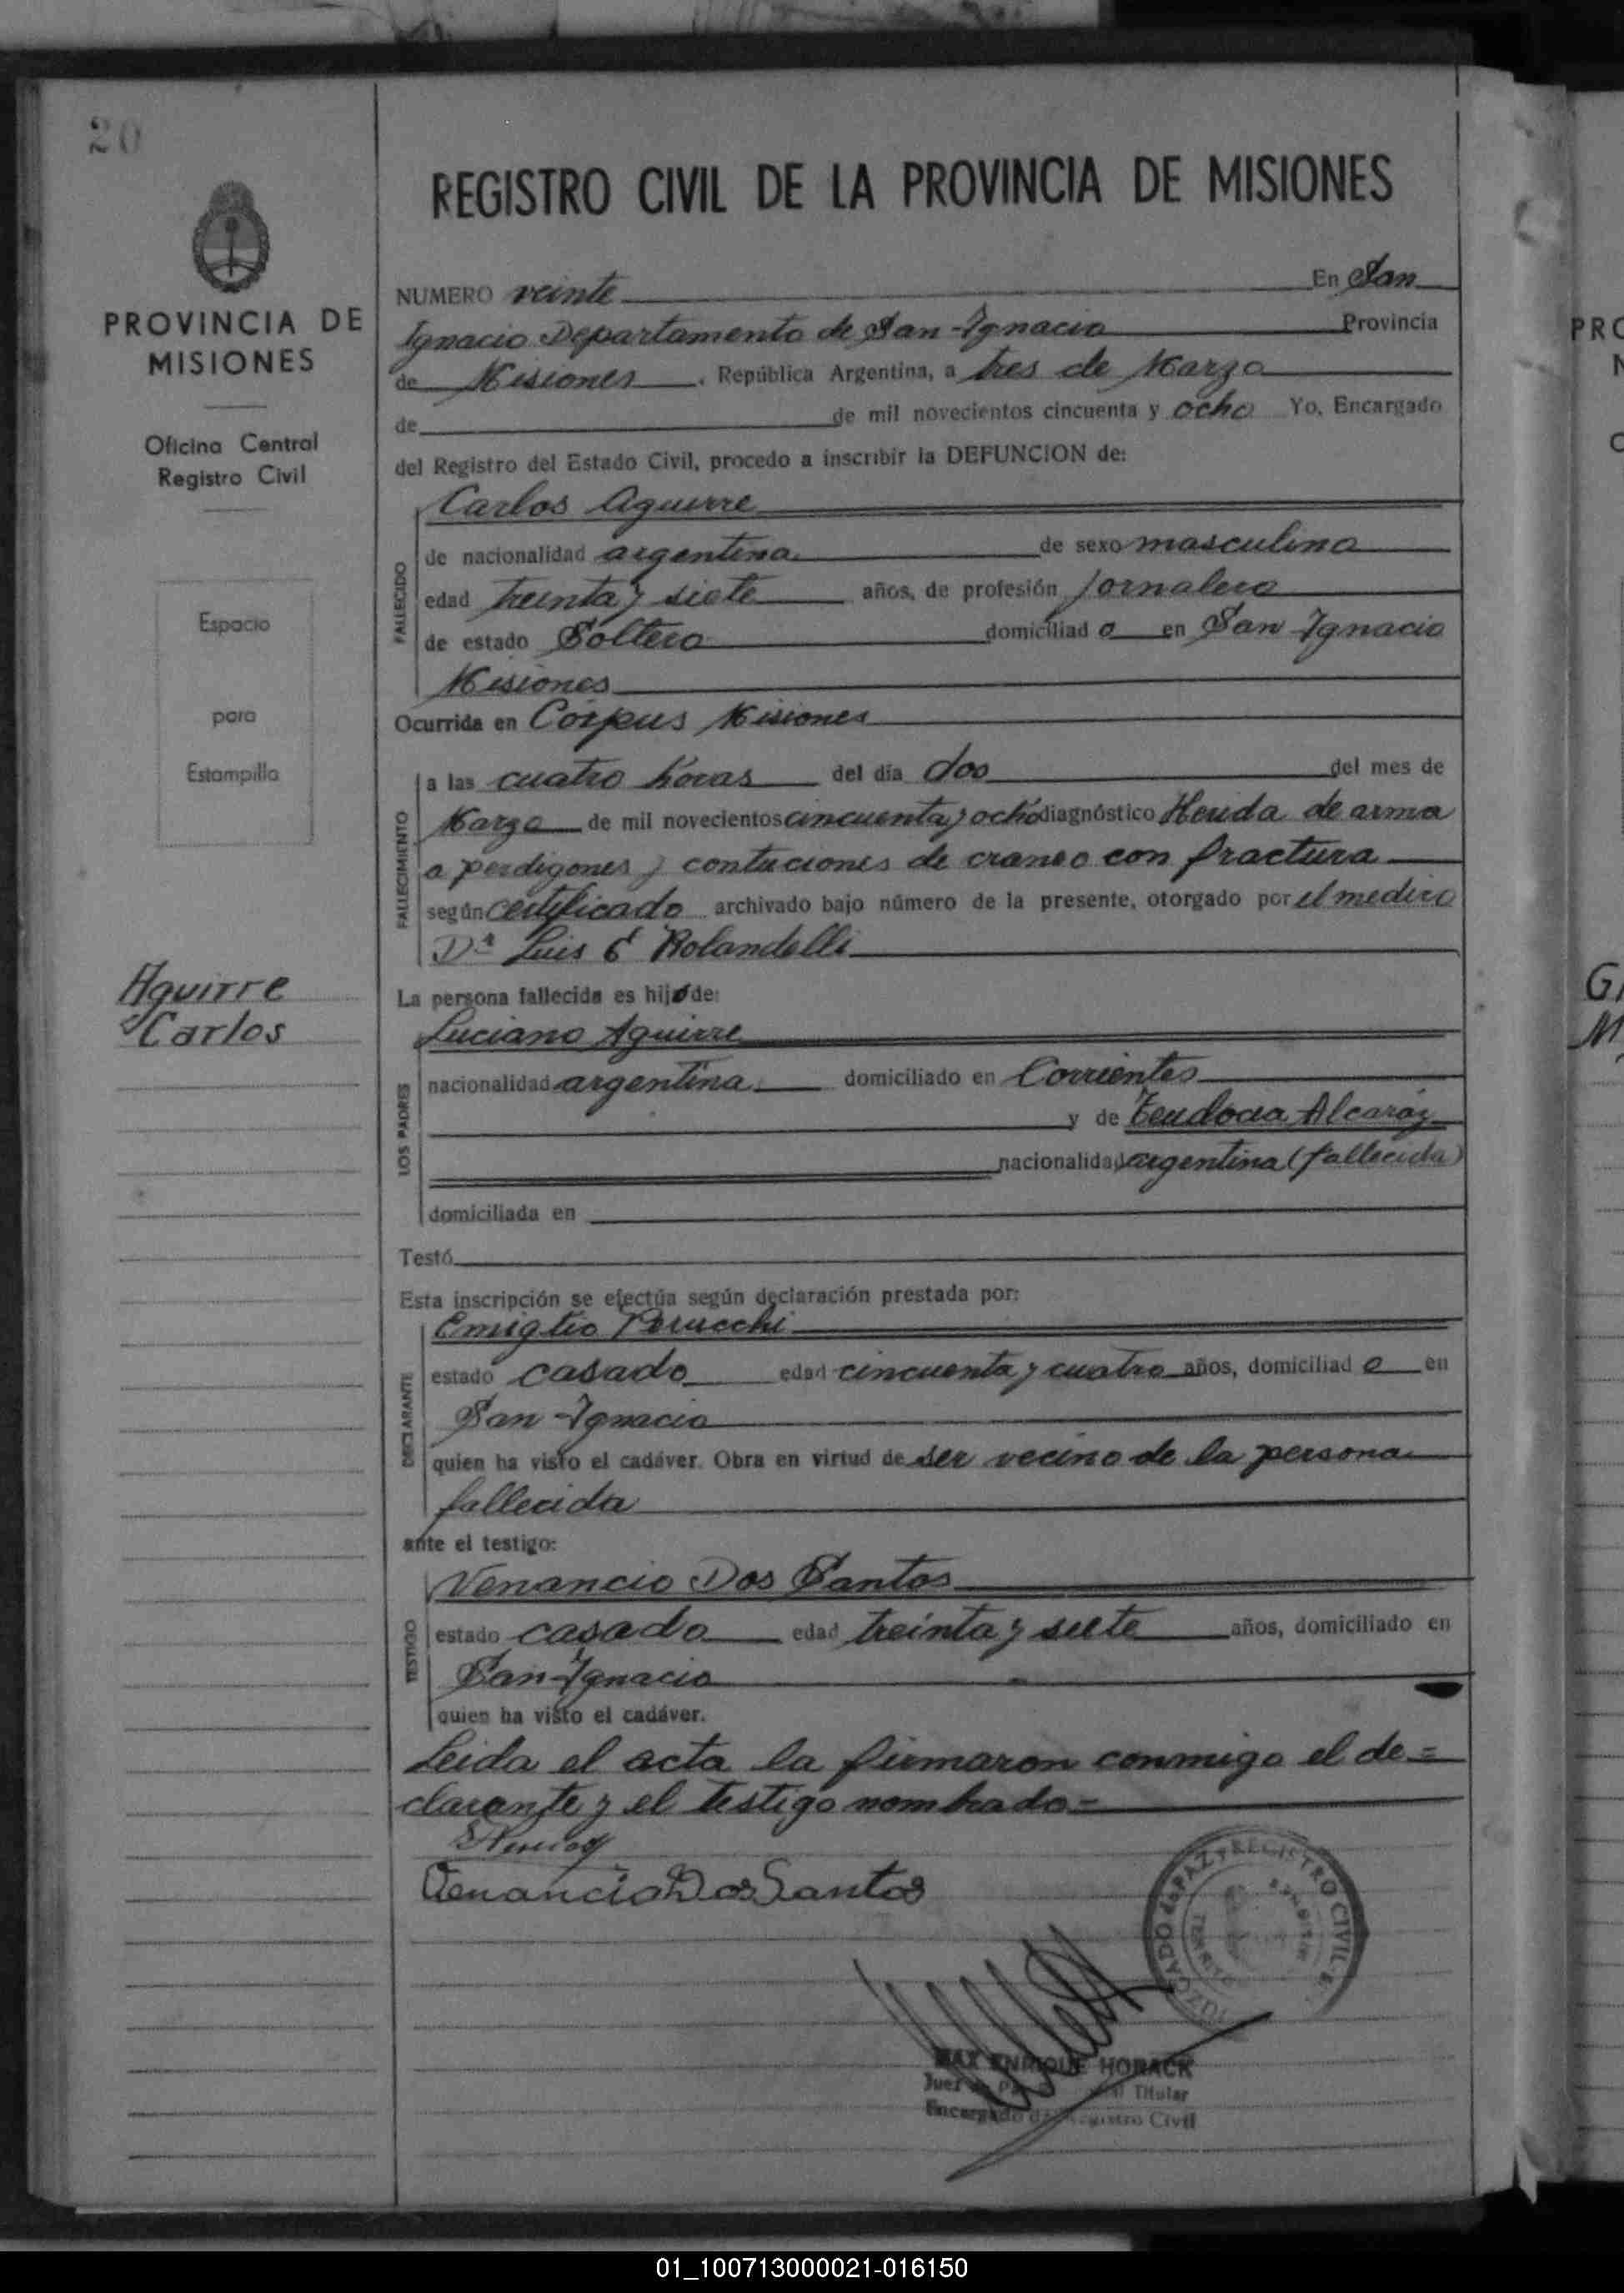 20
PROVINCIA DE
MISIONES
Oficina Central
Registro Civil
Espacio
para
Estampilla
Aguirre
Carlos
REGISTRO CIVIL DE LA PROVINCIA DE MISIONES
NUMERO veinte En San
Ignacio Departamento de San Ignacio Provincia
de Misiones, República Argentina, a tres de Marzo
de de mil novecientos cincuenta y ocho Yo, Encargado
del Registro del Estado Civil, procedo a inscribir la DEFUNCION de:
Carlos Aguirre
FALLECIDO
de nacionalidad argentina de sexo masculino
edad treinta y siete años, de profesión Jornalero
de estado Soltero domiciliad o en San Ignacio
Misiones
Ocurrida en Corpus Misiones
FALLECIMIENTO
a las cuatro horas del día dos del mes de
Marzo de mil novecientos cincuenta y ocho diagnóstico Herida de arma
a perdigones y contuciones de craneo con fractura
según certificado archivado bajo número de la presente, otorgado por el medico
Dr Luis E Rolandelli
La persona fallecida es hijo de:
LOS PADRES
Luciano Aguirre
nacionalidad argentina domiciliado en Corrientes
y de Teudocia Alcaráz
nacionalidad argentina (fallecida)
domiciliada en
Testó
Esta inscripción se efectúa según declaración prestada por:
DECLARANTE
Emiglio Perucchi
estado casado edad cincuenta y cuatro años, domiciliad o en
San Ignacio
quien ha visto el cadáver. Obra en virtud de ser vecino de la persona
fallecida
ante el testigo:
TESTIGO
Venancio Dos Santos
estado casado edad treinta y siete años, domiciliado en
San Ignacio
quien ha visto el cadáver.
Leida el acta la firmaron conmigo el de=
clarante y el testigo nombrado=
Venancio Dos Santos
JUZGADO de PAZ y REGISTRO CIVIL
MAX ENRIQUE HORACK
Juez de Paz Titular
Encargado del Registro Civil
PRO
G
M
01_100713000021-016150